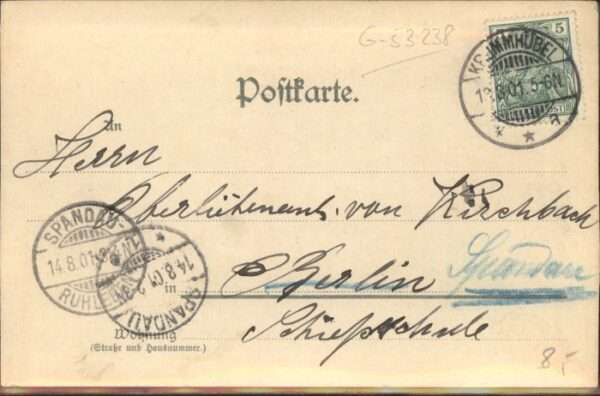 G-53238
5
KR.IMMHÜBEL
13.8.01. 5-6N.
a
Postkarte.
An
Herrn
Oberlieutenant von Kirchbach
SPANDAU-
14.8.01.
RUHLEBEN
14.8.01. 2-3N
SPANDAU
in
Berlin Spandau
Schießschule
Wohnung
(Straße und Hausnummer.)
8,-